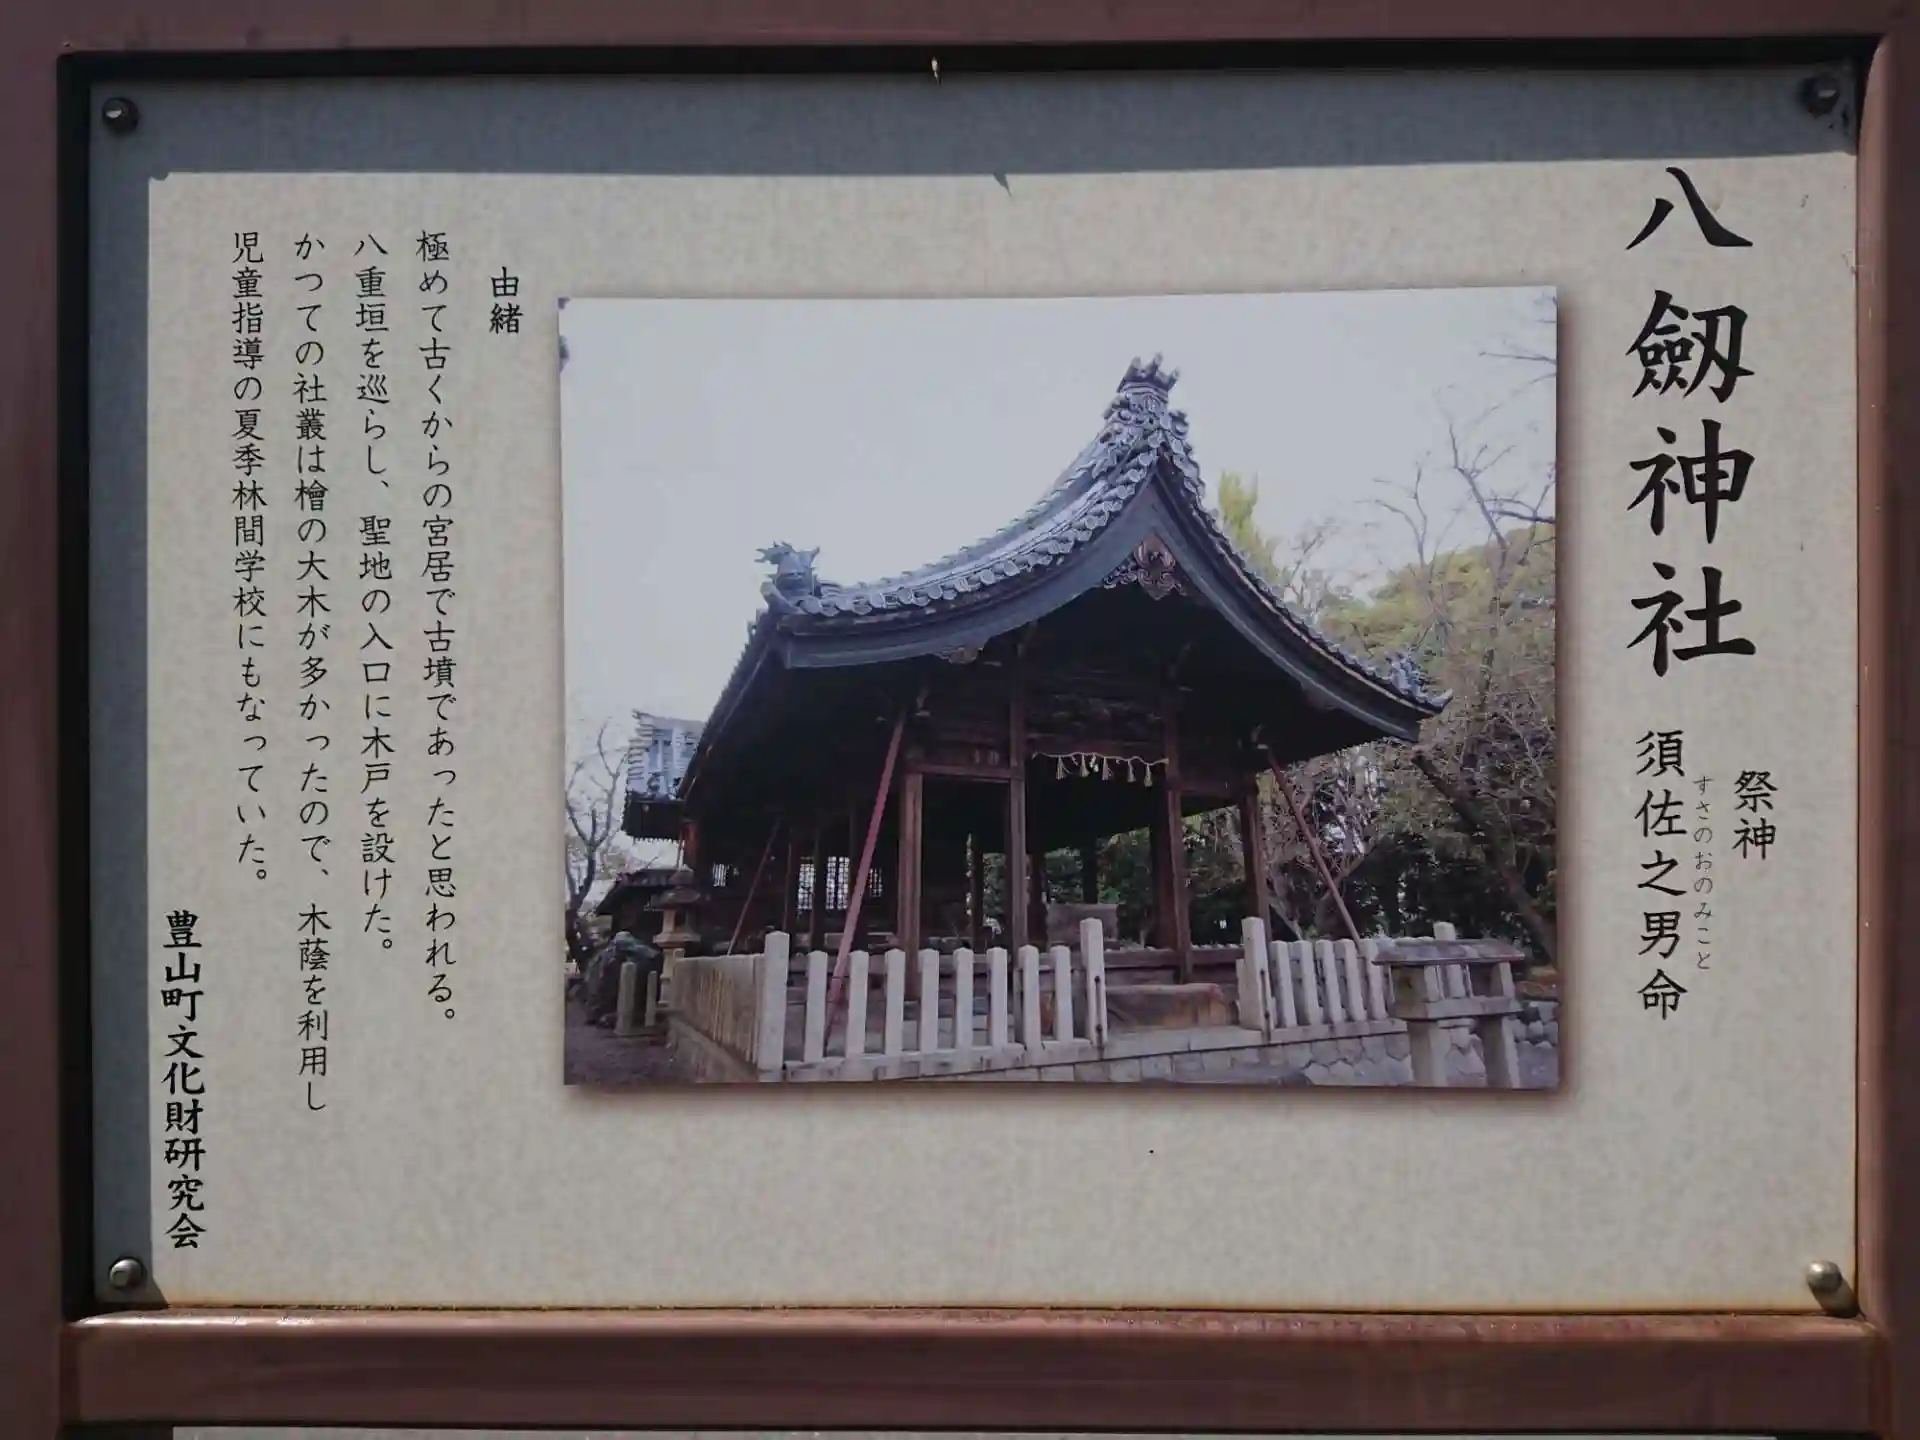 八劔神社
祭神
すさのおのみこと
須佐之男命
由緒
極めて古くからの宮居で古墳であったと思われる。
八重垣を巡らし、聖地の入口に木戸を設けた。
かつての社叢は檜の大木が多かったので、木蔭を利用し
児童指導の夏季林間学校にもなっていた。
豊山町文化財研究会